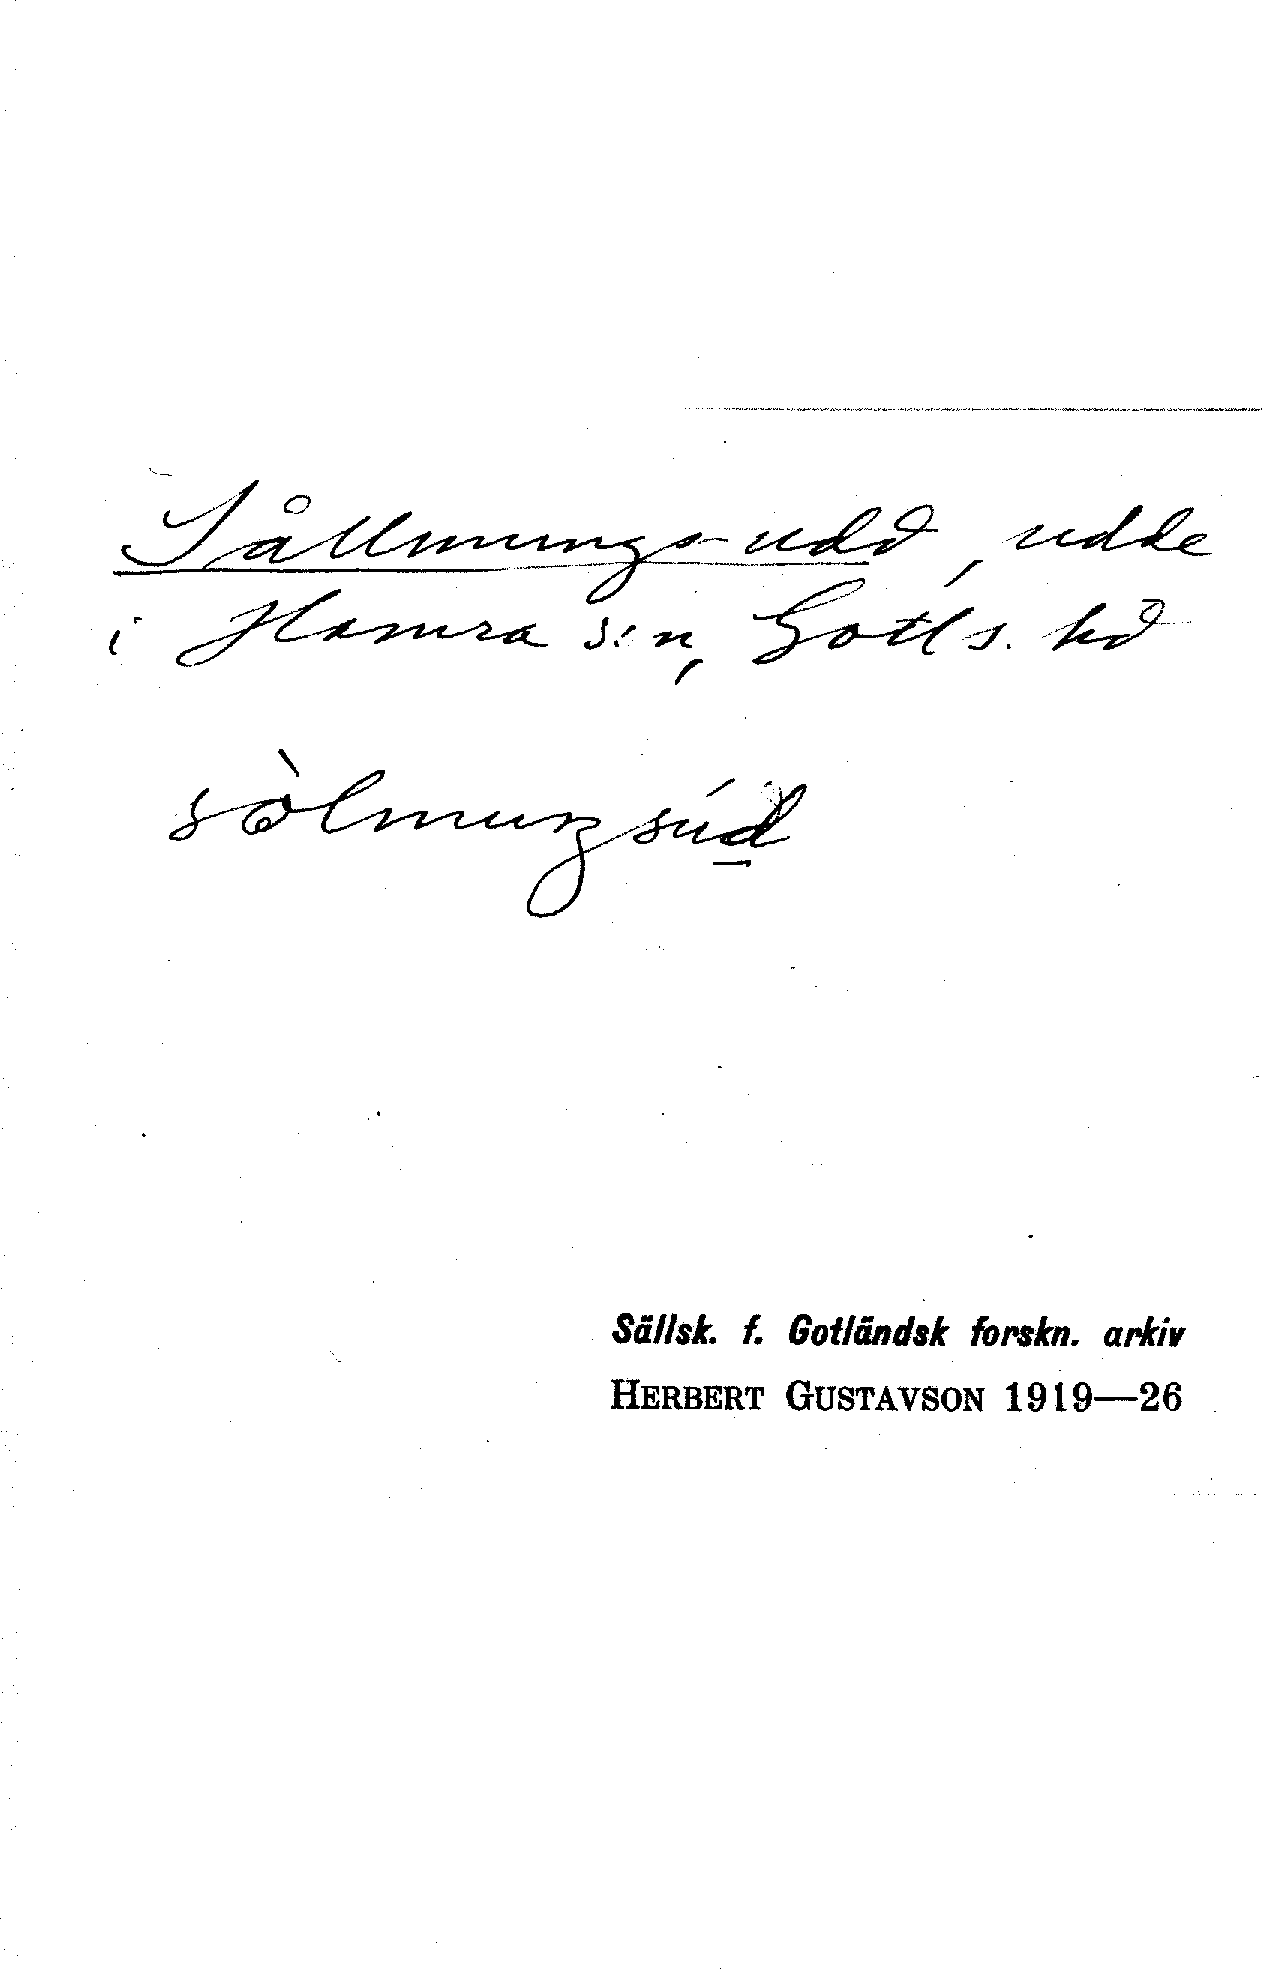 Sållmungs-udd, udde
i Hamra s:n, Gotl s. hd
sòlmuŋsúd
Sällsk. f. Gotländsk forskn. arkiv
HERBERT GUSTAVSON 1919—26